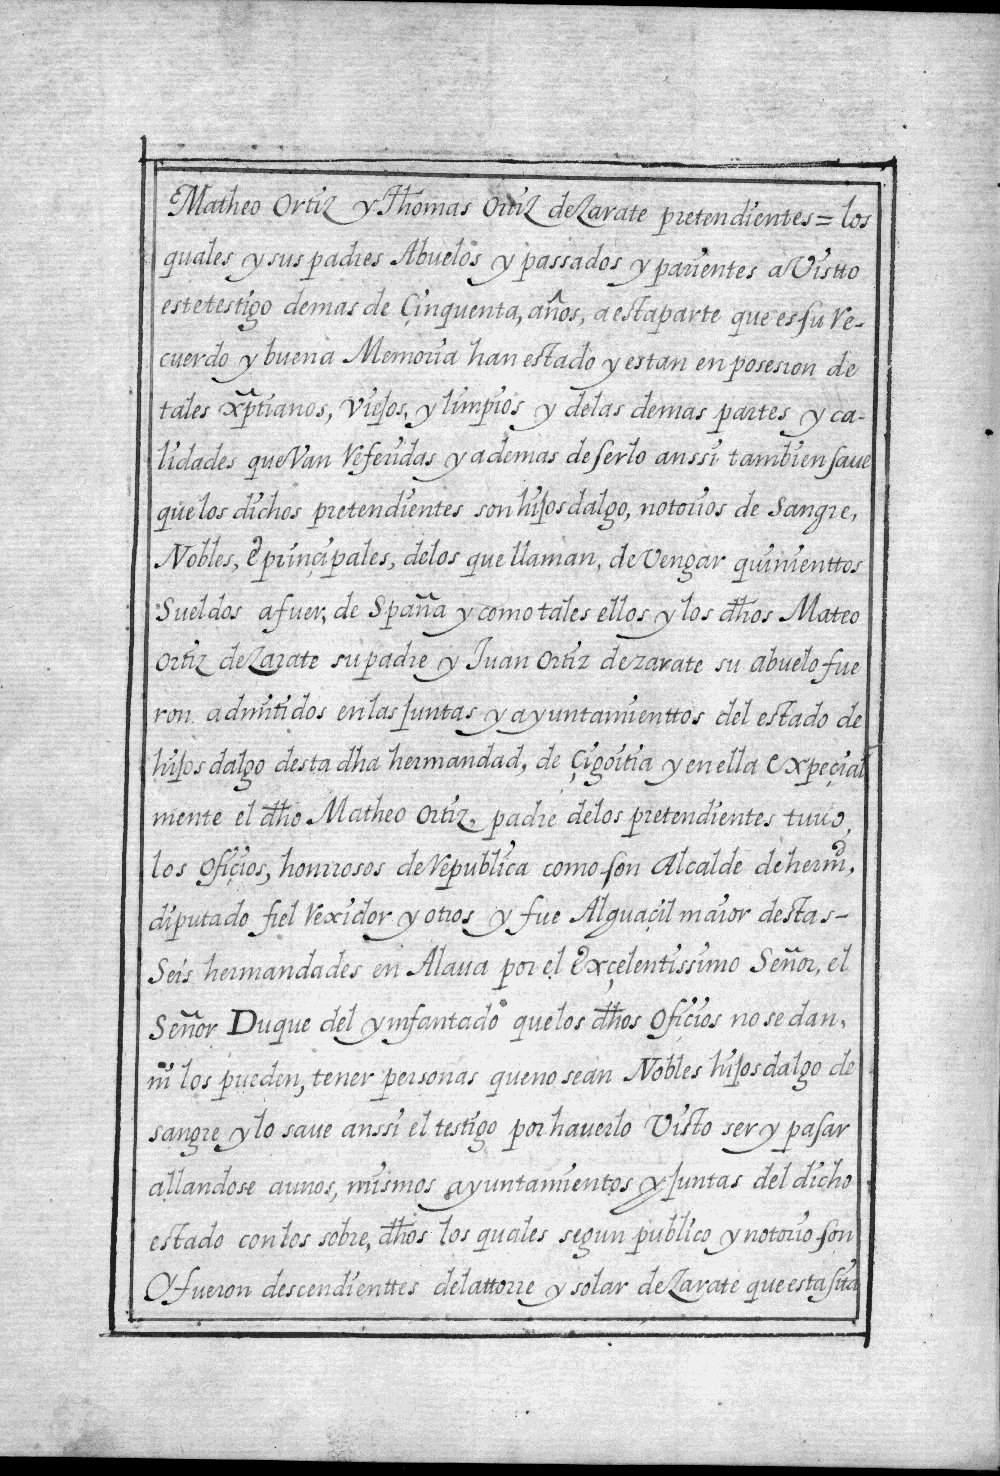 Matheo Ortiz y Thomas Ortiz de Zarate pretendientes = los
quales y sus padres Abuelos y passados y parientes a Vistto
este testigo demas de Çinquenta, años, a esta parte que es su Re-
cuerdo y buena Memoria han estado y estan en posesion de
tales xp̃tianos, Viejos, y limpios y delas demas partes y ca-
lidades que Van Referidas y ademas de serlo anssi tambien saue
que los dichos pretendientes son hijos dalgo, notorios de Sangre,
Nobles, é prinçipales, delos que llaman, de Vengar quinienttos
Sueldos a fuer, de Spaña y como tales ellos y los dhos Mateo
Ortiz de Zarate su padre y Juan Ortiz de zarate su abuelo fue
ron admitidos en las Juntas y ayuntamienttos del estado de
hijos dalgo desta dha hermandad, de Çigoitia y en ella Expeçial
mente el dho Matheo Ortiz, padre delos pretendientes tuuo,
los Ofiçios, honrrosos de Republica como son Alcalde de hermd,
diputado fiel Rexidor y otros y fue Alguaçil maior destas-
Seis hermandades en Alaua por el Exçelentissimo Señor, el
Señor Duque del ynfantado que los dhos Ofiçios no se dan,
ni los pueden, tener personas que no sean Nobles hijos dalgo de
sangre y lo saue anssi el testigo por hauerlo Visto ser y pasar
allandose a unos, mismos ayuntamientos y Juntas del dicho
estado con los sobre, dhos los quales segun publico y notorio son
O fueron descendienttes dela ttorre y solar de Zarate que esta sita